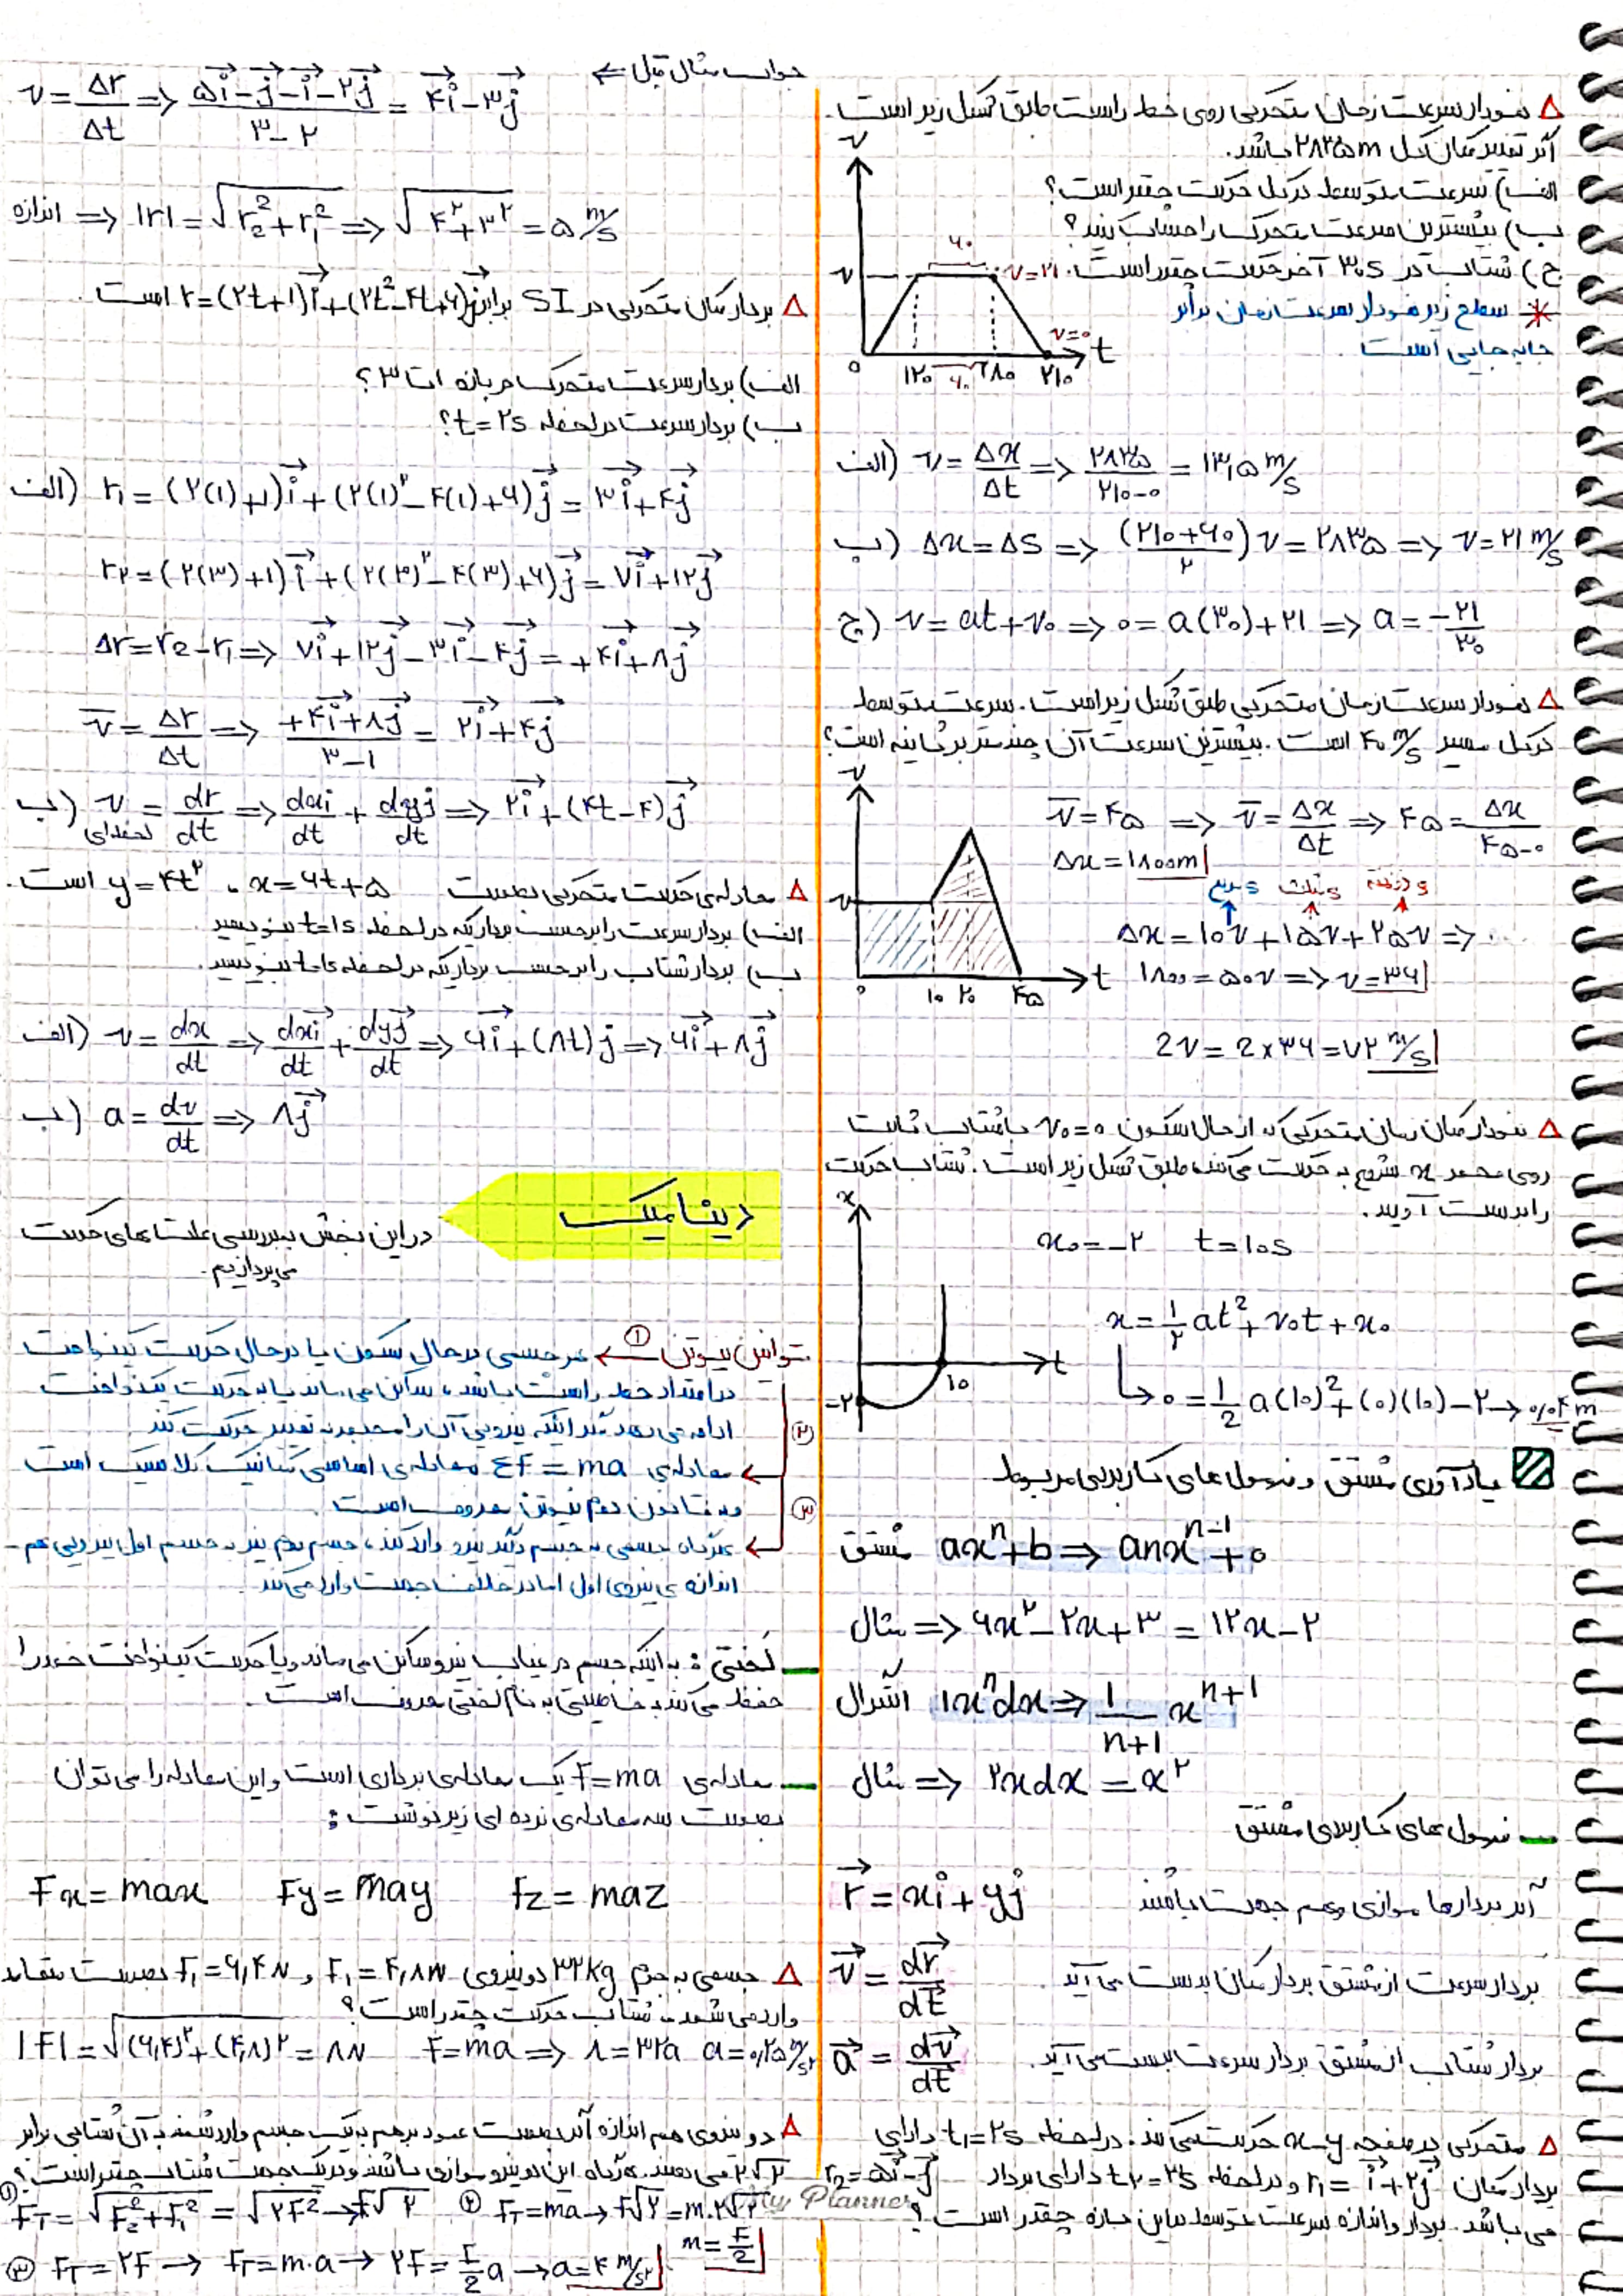 △ نمودار سرعت زمان متحرکی روی خط راست طبق شکل زیر است
اگر تغییر مکان کل ۲۸۳۵m باشد.
الف) سرعت متوسط در کل حرکت چقدر است؟
ب) بیشترین سرعت متحرک را حساب کنید؟
ج) شتاب در ۳۰s آخر حرکت چقدر است.
* سطح زیر نمودار سرعت زمان برابر
جابه جایی است
v
۶۰
v
v=۲۱
v=۰
t
۰ ۱۲۰ ۶۰ ۱۸۰ ۲۱۰
الف) v = Δx/Δt => ۲۸۳۵/۲۱۰-۰ = ۱۳٫۵ m/s
ب) Δx = ΔS => (۲۱۰+۶۰)/۲ v = ۲۸۳۵ => v = ۲۱ m/s
ج) v = at + v۰ => ۰ = a(۳۰) + ۲۱ => a = -۲۱/۳۰
△ نمودار سرعت زمان متحرکی طبق شکل زیر است. سرعت متوسط
در کل مسیر ۴۰ m/s است. بیشترین سرعت آن چند متر بر ثانیه است؟
v
v
۰ ۱۰ ۲۰ ۴۵
t
v̄ = ۴۵ => v̄ = Δx/Δt => ۴۵ = Δx/۴۵-۰
Δx = ۱۸۰۰m
s مربع s مثلث s ذوزنقه
Δx = ۱۰v + ۱۵v + ۲۵v =>
۱۸۰۰ = ۵۰v => v = ۳۶
2v = 2×۳۶ = ۷۲ m/s
△ نمودار مکان زمان متحرکی که از حال سکون v۰=۰ با شتاب ثابت
روی محور x شروع به حرکت می‌کند، طبق شکل زیر است. شتاب حرکت
را بدست آورید.
x
t
۱۰
-۲
x۰ = -۲ t = ۱۰s
x = ۱/۲ at² + v۰t + x۰
↳ ۰ = 1/2 a(۱۰)² + (۰)(۱۰) - ۲ → ۰٫۰۴ m
یادآوری مشتق و فرمول های کاربردی مربوط
مشتق axⁿ + b => anxⁿ⁻¹ + ۰
مثال => ۶x² - ۲x + ۳ = ۱۲x - ۲
انتگرال ∫xⁿdx => 1/n+1 xⁿ⁺¹
مثال => ۲xdx = x²
— فرمول های کاربردی مشتق
r = xi + yj اگر بردارها موازی و هم جهت باشند
v = dr/dt بردار سرعت از مشتق بردار مکان بدست می آید
a = dv/dt بردار شتاب از مشتق بردار سرعت بدست می آید.
△ متحرکی در صفحه x-y حرکت می‌کند. در لحظه t₁=۲s دارای
بردار مکان r₁ = i + ۲j و در لحظه t۲=۳s دارای بردار r₂ = ۵i - j
می باشد. بردار و اندازه سرعت متوسط در این بازه چقدر است؟
جواب مثال قبل <=
v = Δr/Δt => ۵i - j - i - ۲j/۳-۲ = ۴i - ۳j
اندازه => |r| = √r₂² + r₁² => √۴² + ۳² = ۵ m/s
△ بردار مکان متحرکی در SI برابر r = (۲t+۱)i + (۲t²-۴t+۶)j است.
الف) بردار سرعت متحرک در بازه ۱s تا ۳؟
ب) بردار سرعت در لحظه t = ۲s؟
الف) r₁ = (۲(۱)+۱)i + (۲(۱)² - ۴(۱) + ۶)j = ۳i + ۴j
r۲ = (۲(۳)+۱)i + (۲(۳)² - ۴(۳) + ۶)j = ۷i + ۱۲j
Δr = r₂ - r₁ => ۷i + ۱۲j - ۳i - ۴j = +۴i + ۸j
v̄ = Δr/Δt => +۴i + ۸j/۳-۱ = ۲i + ۴j
ب) v لحظه‌ای = dr/dt => dxi/dt + dyj/dt => ۲i + (۴t-۴)j
△ معادله‌ی حرکت متحرکی بصورت x = ۶t+۵ ، y = ۴t² است.
الف) بردار سرعت را برحسب بردار یکه در لحظه t=۱s بنویسید.
ب) بردار شتاب را برحسب بردار یکه در لحظه بنویسید.
الف) v = dx/dt => dxi/dt + dyj/dt => ۶i + (۸t)j => ۶i + ۸j
ب) a = dv/dt => ۸j
دینامیک
در این بخش به بررسی علت های حرکت
می پردازیم.
قوانین نیوتن ① ← هر جسمی در حال سکون یا در حال حرکت یکنواخت
در امتداد خط راست باشد، ساکن می ماند یا به حرکت یکنواخت
ادامه می دهد مگر اینکه نیرویی آن را مجبور به تغییر حرکت کند
② ← معادله‌ی ΣF = ma معادله‌ی اساسی مکانیک کلاسیک است
و به قانون دوم نیوتن معروف است.
③ ← هرگاه جسمی به جسم دیگر نیرو وارد کند، جسم دوم نیز به جسم اول نیرویی هم-
اندازه ی نیروی اول اما در خلاف جهت وارد می‌کند.
— لَختی : به اینکه جسم در غیاب نیرو ساکن می ماند و یا حرکت یکنواخت خود را
حفظ می‌کند به خاصیتی به نام لختی معروف است.
— معادله‌ی F=ma یک معادله‌ی برداری است و این معادله را می توان
بصورت سه معادله‌ی نرده ای زیر نوشت :
Fx = max Fy = may Fz = maz
△ جسمی به جرم ۳۲kg دو نیروی F₁ = ۴٫۸N و F₁ = ۶٫۴N بصورت متعامد
وارد می شود. شتاب حرکت چقدر است؟
|F| = √(۶٫۴)² + (۴٫۸)² = ۸N F = ma => ۸ = ۳۲a a = ۰٫۲۵ m/s²
△ دو نیروی هم اندازه اگر بصورت عمود برهم به یک جسم وارد شوند به آن شتابی برابر
۲√۲ می دهند. هرگاه این دو نیرو موازی باشند و در یک جهت شتاب چقدر است؟
① FT = √F₂² + F₁² = √۲F² → F√۲ ② FT = ma → F√۲ = m.۲√۲
m = F/2
③ FT = ۲F → FT = m.a → ۲F = F/2 a → a = ۴ m/s²
My Planner